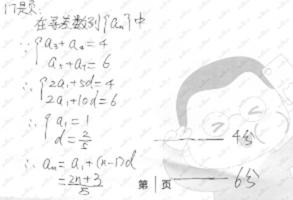 17题:
在等差数列{an}中
∴{a3+a4=4
a5+a7=6
∴{2a1+5d=4
2a1+10d=6
∴{a1=1
d=2/5 —— 4分
∴ an=a1+(n-1)d
=2n+3/5 —— 6分
第 页